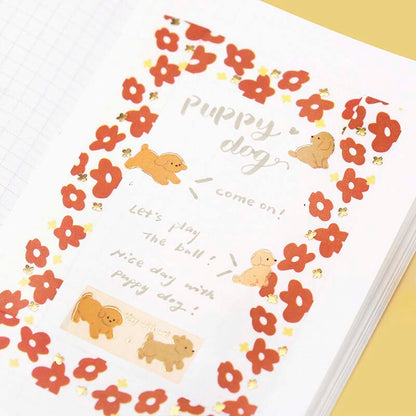 puppy
dog
come on!
Let's play
The ball!
Nice day with
puppy dog!